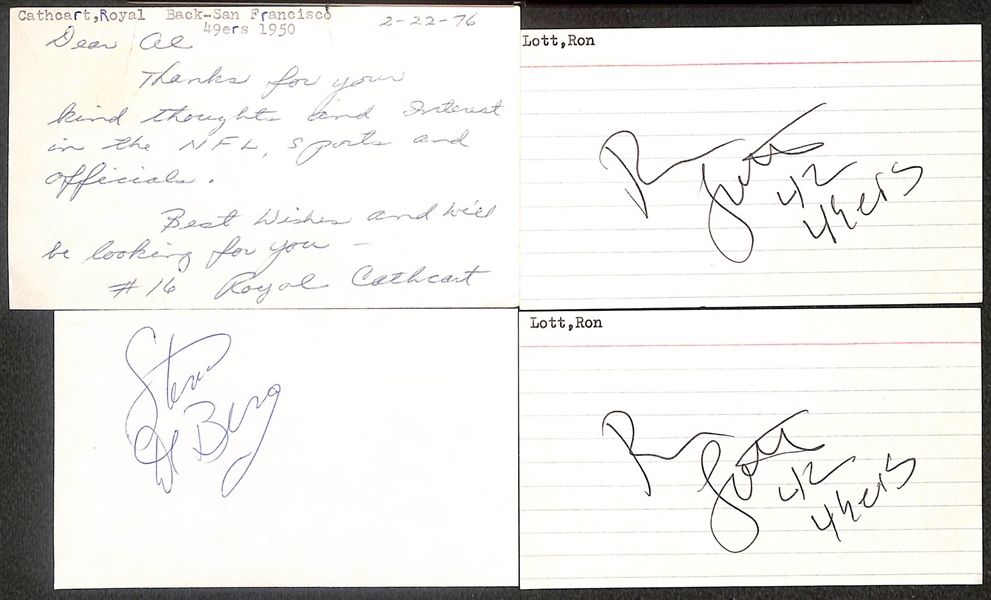 Cathcart,Royal Back-San Francisco
49ers 1950
2-22-76
Dear Al
Thanks for your
kind thoughts and Interest
in the NFL, sports and
officials.
Best Wishes and We'll
be looking for you —
#16 Royal Cathcart
Lott,Ron
Ron Lott 42
49ers
Steve
DeBerg
Lott,Ron
Ron Lott 42
49ers